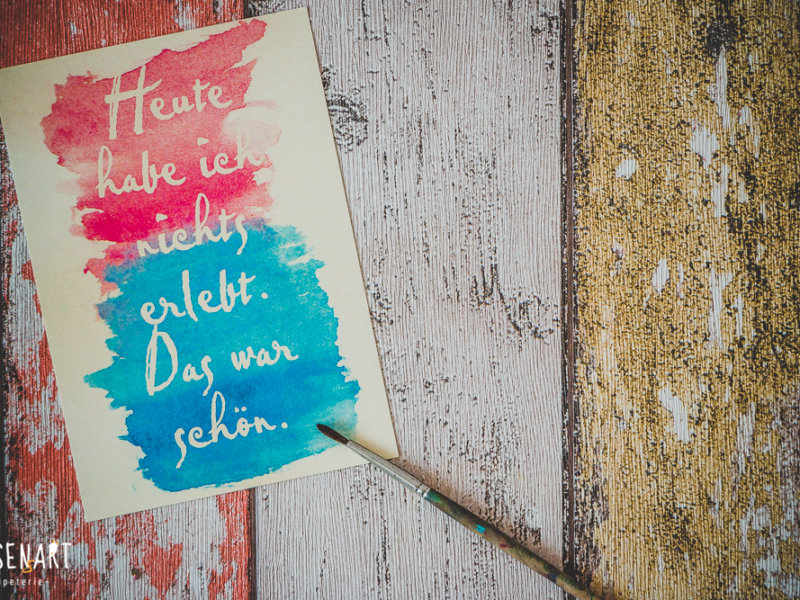 Heute
habe ich
nichts
erlebt.
Das war
schön.
SENART
peterie